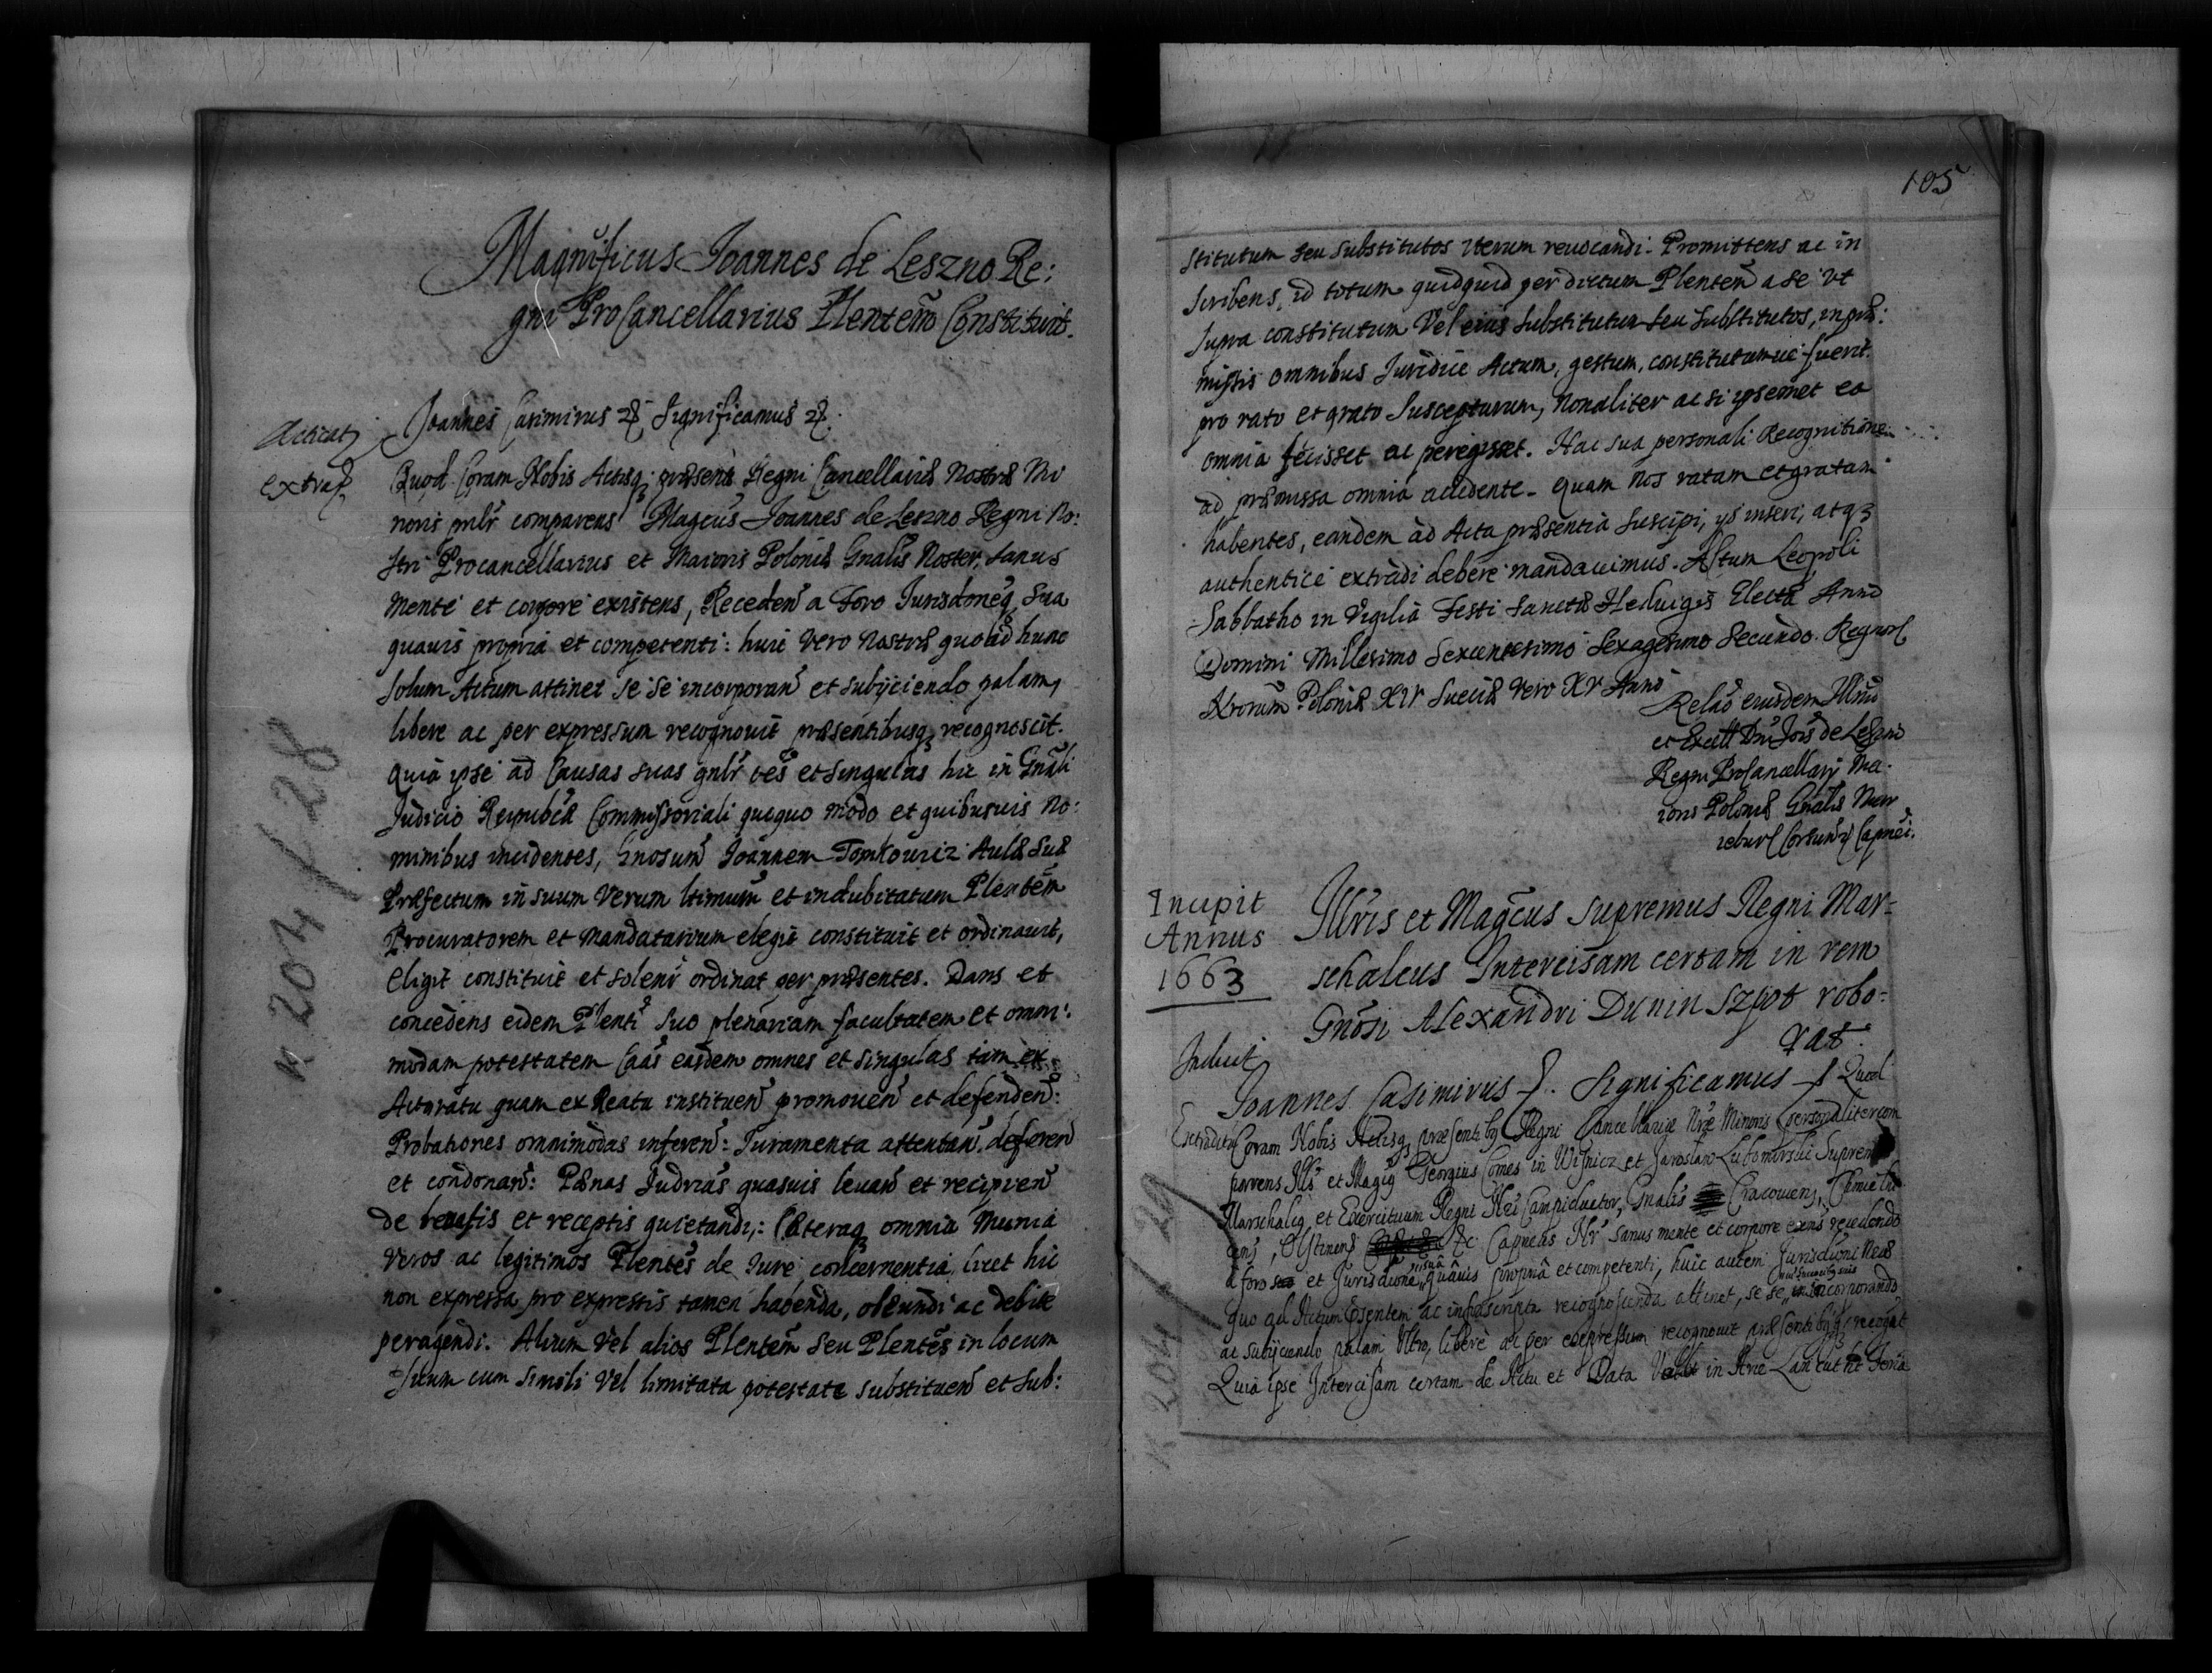 Magnificus Joannes de Leszno Re:
gni ProCancellarius Plentem Constituit.
Joannes Casimirus Significamus
Acticat
extrad
Quod Coram Nobis Actisq; præsent Regni Cancellariæ Nostræ Mi
noris prnlr comparens Magcus Joannes de Leszno Regni No:
stri Procancellarius et Maioris Poloniæ Gnalis Noster, sanus
mente et corpore existens, Receden a Foro Jurisdoneq sua
quauis propria et competenti: huic vero nostræ quo ad hunc
solum Actum attinet se se incorporan et subijciendo palam,
libere ac per expressum recognouit præsentibusq recognoscit.
Quia ipse ad Causas suas gnlr oes et singulas hic in Gnali
Judicio Reipublcæ Commissoriali quequo modo et quibusuis no:
minibus incidentes, Gnosum Joannem Tomkowicz Aulæ suæ
Præfectum in suum verum ltimum et indubitatum Plentem
Procuratorem et mandatarium elegit constituit et ordinauit,
eligit constituit et solenr ordinat per præsentes. Dans et
concedens eidem Plenti suo plenariam facultatem et omni:
modam potestatem Caas easdem omnes et singulas tam ex
Actoratu quam ex Reatu instituen promouen et defenden:
Probationes omnimodas inferen: Juramenta attentan, deferen
et condonan: Pænas Judrias quasuis leuan et recipien
de leuasis et receptis quietandi,: Cæteraq omnia munia
veros ac legitimos Plentes de Jure concernentia licet hic
non expressa pro expressis tamen habenda, obeundi ac debite
peragendi. Alium vel alios Plentem seu Plentes in locum
suum cum simili vel limitata potestate substituen et sub:
N 204 / 28
105
stitutum seu substitutos iterum reuocandi. Promittens ac in
scribens, id totum quidquid per dictum Plentem a se vt
supra constitutum vel eius substitutum seu substitutos, in præ:
missis omnibus Juridice Actum, gestum, constitutumue fuerit.
pro rato et grato suscepturum, non aliter ac si ipsemet ea
omnia fecisset ac peregisset. Hac sua personali Recognitione
ad præmissa omnia accedente. Quam nos ratam et gratam
habentes, eandem ad Acta præsentia suscipi, ijs inseri, atq
authentice extradi debere mandauimus. Actum Leopoli
Sabbatho in Vigilia Festi Sanctæ Hedvigis Electæ Anno
Domini Millesimo Sexcentesimo Sexagesimo Secundo. Regnor
Nrorum Poloniæ XIV Sueciæ vero XV Anno
Relao eiusdem Illmi
et Excell Dni Jois de Leszno
Regni ProCancellarij Ma
ioris Poloniæ Gnalis
Corsun Capnei.
Incipit
Annus
1663
Illris et Magcus Supremus Regni Mar-
schalcus Intercisam certam in rem
Gnosi Alexandri Dunin Szpot robo-
rat.
Induct
Joannes Casimirus Significamus Quod
Extradit Coram Nobis Actisq præsentibq Regni Cancellariæ Nræ Minoris personaliter com
parens Ills et Magcq Georgius Comes in Wisnicz et Jaroslaw Lubomirski Supremq
Marschalcq et Exercituum Regni Nri Campiductor, Gnalis Cracouiens, Chmieln
cens, Olstinens Ac Capneus Nr sanus mente et corpore exns recedendo
a foro et Jurisdione sua quâuis propriâ et competenti, huic autem Jurisdioni Nræ
quo ad Actum psentem ac infrascripta recognoscenda attinet, se se incorporando
ac subijciendo palam vltro, libere ac per expressum recognouit præsentibqq recogt
Quia ipse Intercisam certam de Actu et Data in Arce Lancut Feria
N 204 / 29